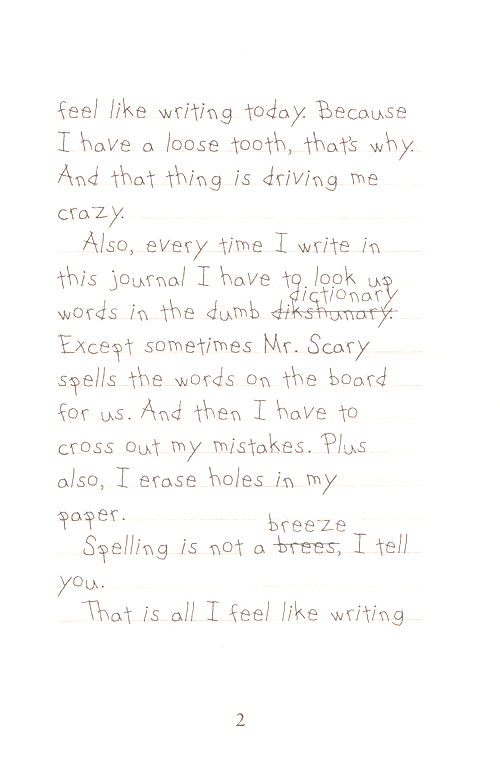 feel like writing today. Because
I have a loose tooth, that's why.
And that thing is driving me
crazy.
Also, every time I write in
this journal I have to look up
dictionary
words in the dumb dikshunary.
Except sometimes Mr. Scary
spells the words on the board
for us. And then I have to
cross out my mistakes. Plus
also, I erase holes in my
paper.
breeze
Spelling is not a brees, I tell
you.
That is all I feel like writing
2